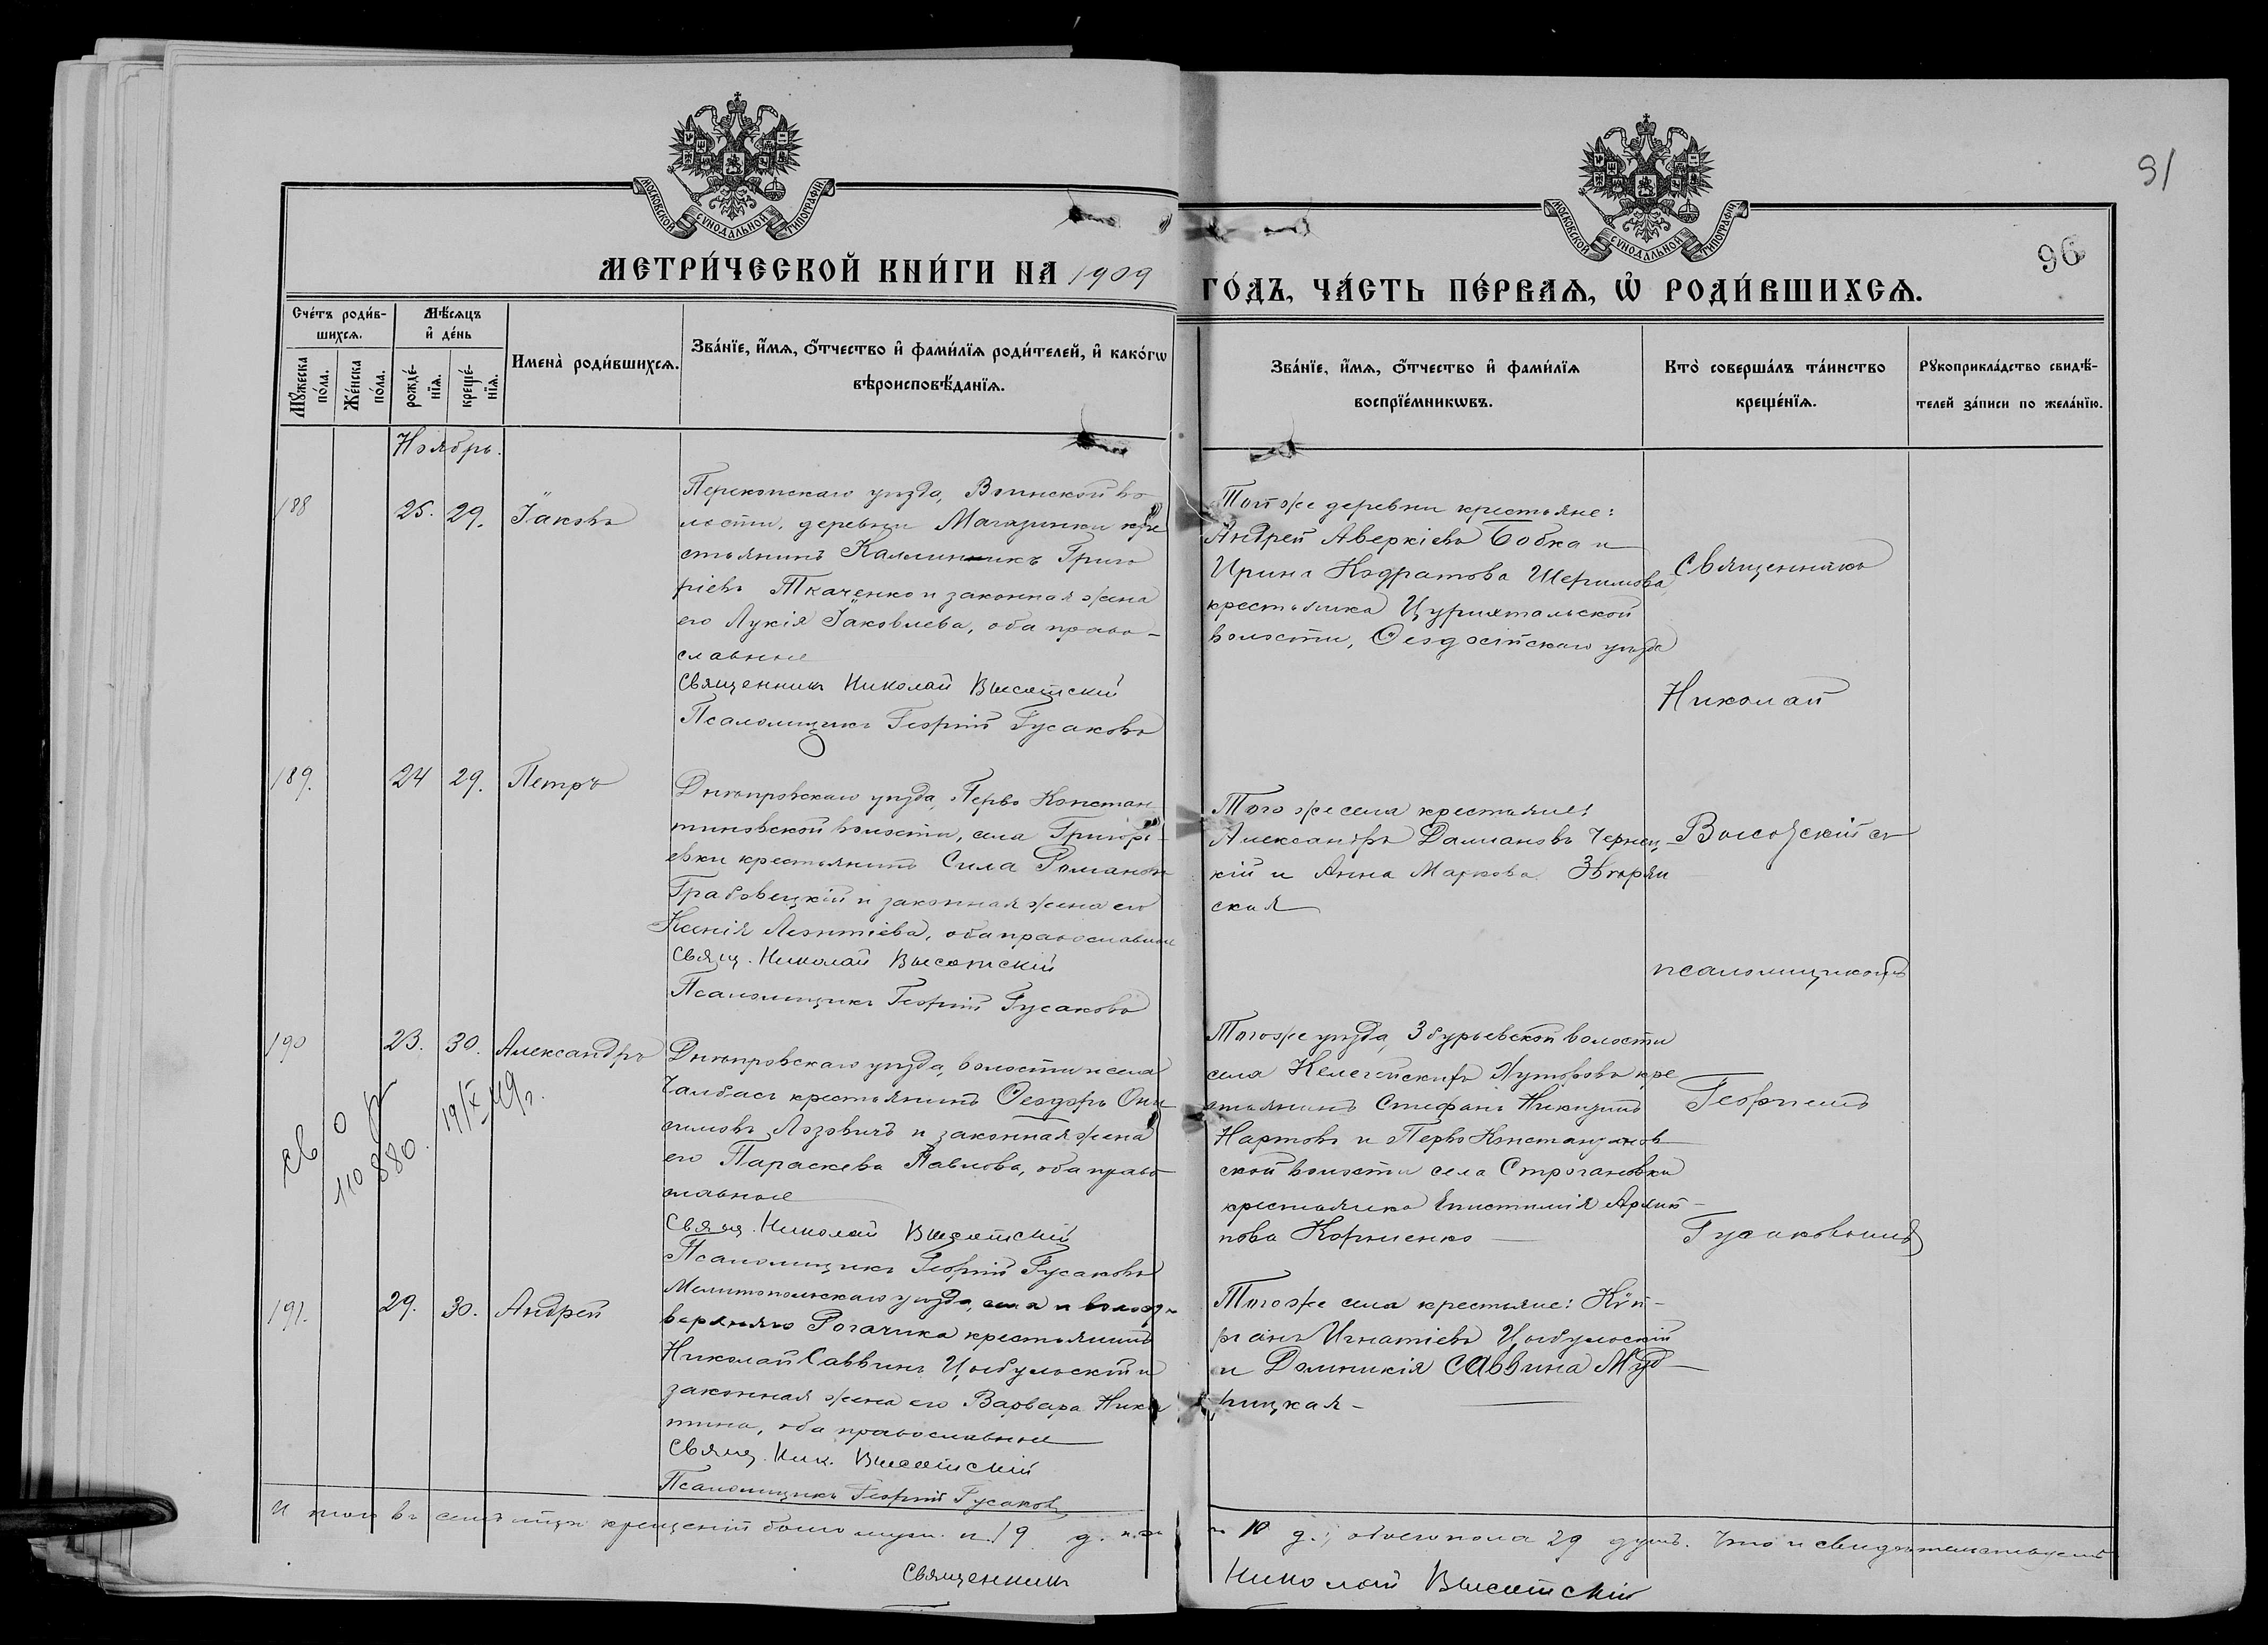 91
96
МОСКОВСКОЙ СУНОДАЛЬНОЙ ТИПОГРАФІИ
МОСКОВСКОЙ СУНОДАЛЬНОЙ ТИПОГРАФІИ
МЕТРИ́ЧЕСКОЙ КНИ́ГИ НА 1909
ГО́ДЪ, ЧА́СТЬ ПЕ́РВАѦ, Ѡ҆ РОДИ́ВШИХСѦ.
Сче́тъ роди́в-
шихсѧ.
Мѣ́сѧцъ
и҆ де́нь
Мꙋ́жеска
по́ла.
Же́нска
по́ла.
рожде́-
нїѧ.
креще́-
нїѧ.
Имена̀ роди́вшихсѧ.
Зва́нїе, и҆́мѧ, ѻ҆́тчество и҆ фами́лїѧ роди́телей, и҆ како́гѡ
вѣроисповѣ́данїѧ.
Зва́нїе, и҆́мѧ, ѻ҆́тчество и҆ фами́лїѧ
воспрїе́мникѡвъ.
Кто̀ соверша́лъ та́инство
креще́нїѧ.
Рꙋкоприкла́дство свидѣ́-
телей за́писи по жела́нїю.
Ноябрь.
188
25. 29. Іаковъ
Перекопскаго уѣзда, Воинской во-
лости, деревни Магазинки кре
стьянинъ Каллинникъ Григо
ріевъ Ткаченко и законная жена
его Лукія Іаковлева, оба право-
славные
Священникъ Николай Высотскій
Псаломщикъ Георгій Гусаковъ
Той же деревни крестьяне:
Андрей Аверкіевъ Бобка и
Ирина Кодратова Шеримова
крестьянка Цурихтальской
волости, Ѳеодосійскаго уѣзда
Священникъ
Николай
189.
24 29. Петръ
Днѣпровскаго уѣзда, Перво Констан
тиновской волости, села Григорь-
евки крестьянинъ Сила Романовъ
Грабовецкій и законная жена его
Ксенія Леонтіева, оба православные
Свящ. Николай Высотскій
Псаломщикъ Георгій Гусаковъ
Того же села крестьяне:
Александръ Даміановъ Чернец-
кій и Анна Маркова
ская
Высотскій съ
псаломщикомъ
190
23. 30. Александръ
Днѣпровскаго уѣзда, волости и села
Чалбасъ крестьянинъ Ѳеодоръ Они
симовъ Лозовичъ и законная жена
его Параскева Павлова, оба право
славные
Свящ. Николай Высотскій
Псаломщикъ Георгій Гусаковъ
110880.
19/X 49г.
Того же уѣзда, Збурьевской волости
села Келегейскихъ Хуторовъ кре
стьянинъ Стефанъ Никитинъ
Нартовъ и Перво Константинов
ской волости села Строгановки
крестьянка Епистимія Архип-
пова Корниенко
Георгіемъ
Гусаковымъ
191.
29. 30. Андрей
Мелитопольскаго уѣзда, села и волости
верхняго Рогачика крестьянинъ
Николай Саввинъ Цыбульскій и
законная жена его Варвара Ники
тина, оба православные
Свящ. Ник. Высотскій
Псаломщикъ Георгій Гусаковъ
Того же села крестьяне: Кѵп-
ріанъ Игнатіевъ Цыбульскій
и Домникія Саввина Муд-
рицкая-
Итого въ семъ мѣсяцѣ крещеній было муж. п. 19 д. жен
п 10 д.; обоего пола 29 душъ. Что и свидѣтельствуемъ
Священникъ
Николай Высотскій